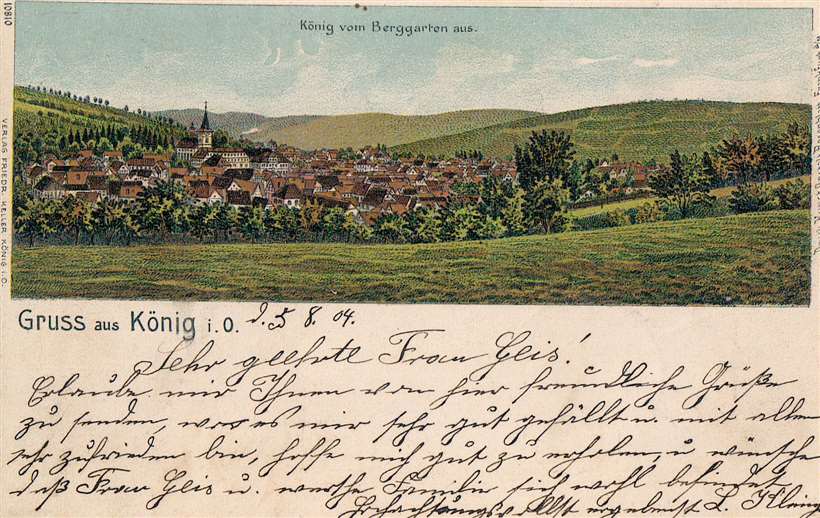 10810
König vom Berggarten aus.
VERLAG FRIEDR. KELLER, KÖNIG i. O.
Gruss aus König i. O. d. 5 8. 04.
Sehr geehrte Frau Geis!
Erlaube mir Ihnen von hier freundliche Grüße
zu senden, wo es mir sehr gut gefällt u. mit allem
sehr zufrieden bin, hoffe mich gut zu erholen, u. wünsche
daß Frau Geis u. werthe Familie sich wohl befindet
Achachtungsvollst ergebenst L.